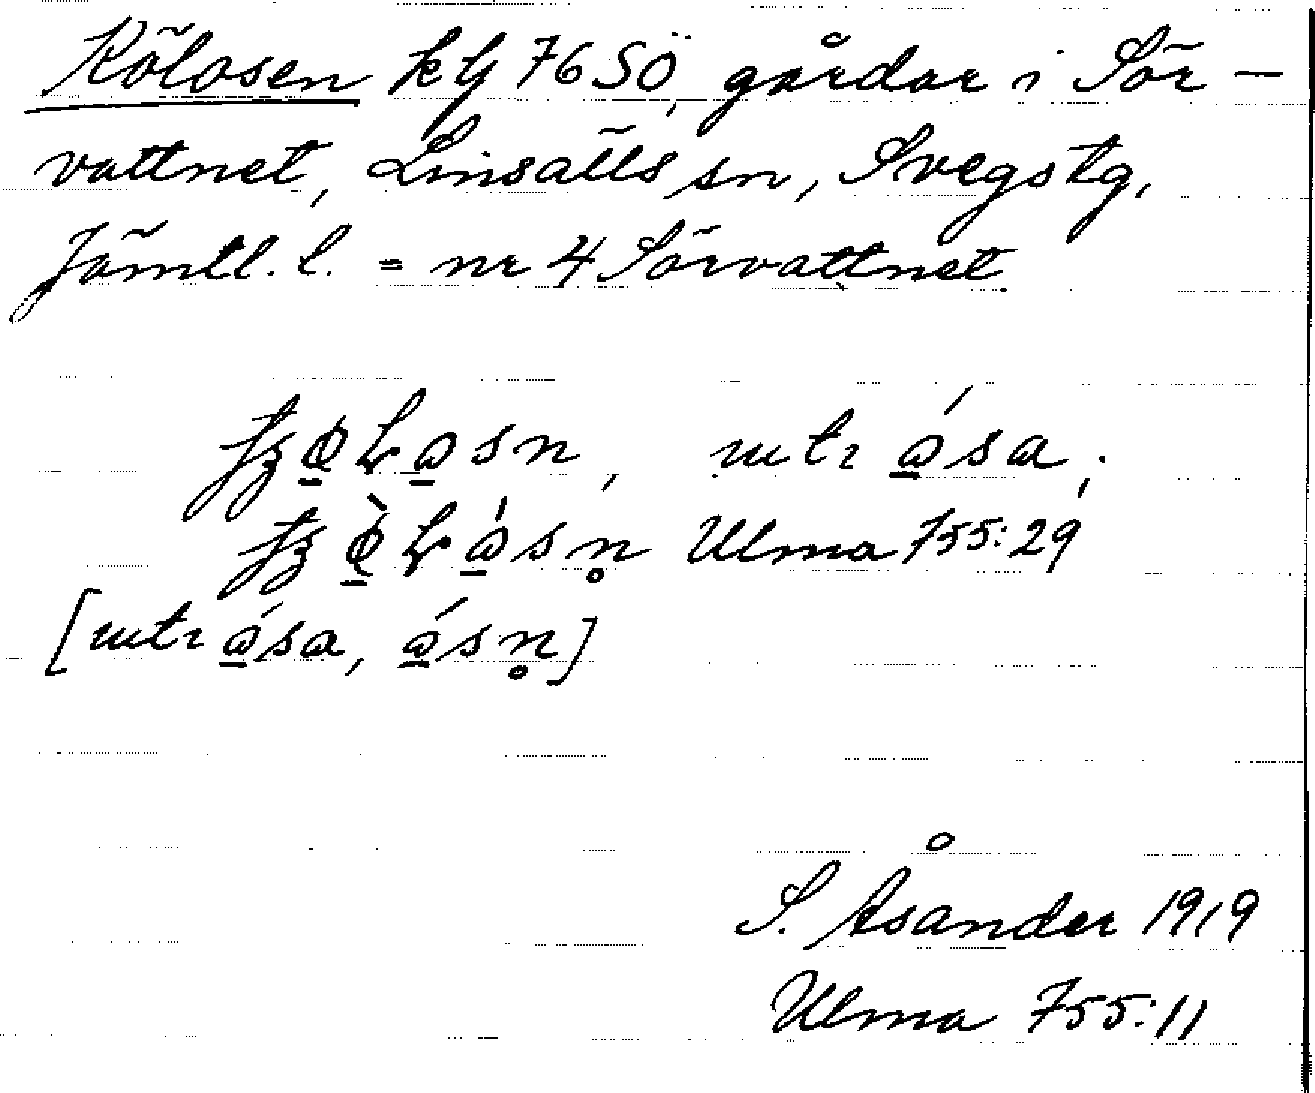 Kölosen kfj 76 SÖ, gårdar i Sör-
vattnet, Linsälls sn, Svegs tg,
Jämtl. l. = nr 4 Sörvattnet.
mtr ása;
Ulma 755:29
[mtr ása, ásn̥]
S. Åsander 1919
Ulma 755:11